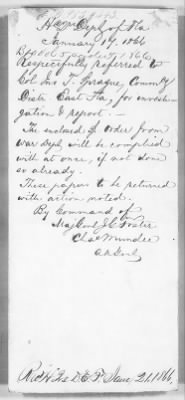 Hdqrs Dept of Fla
January 17, 1866
Respectfully referred to
Col Jno T. Sprague, Comm'g
Dist. East Fla, for investi-
gation & report. —
The inclosed order from
war dept, will be complied
with at once, if not done
so already.
These papers to be returned
with action noted.
By Command of
Maj Genl J G Foster
Chas Mundee
A A Genl
Rec'd H Qrs D. E. F. Jane 21, 1866,